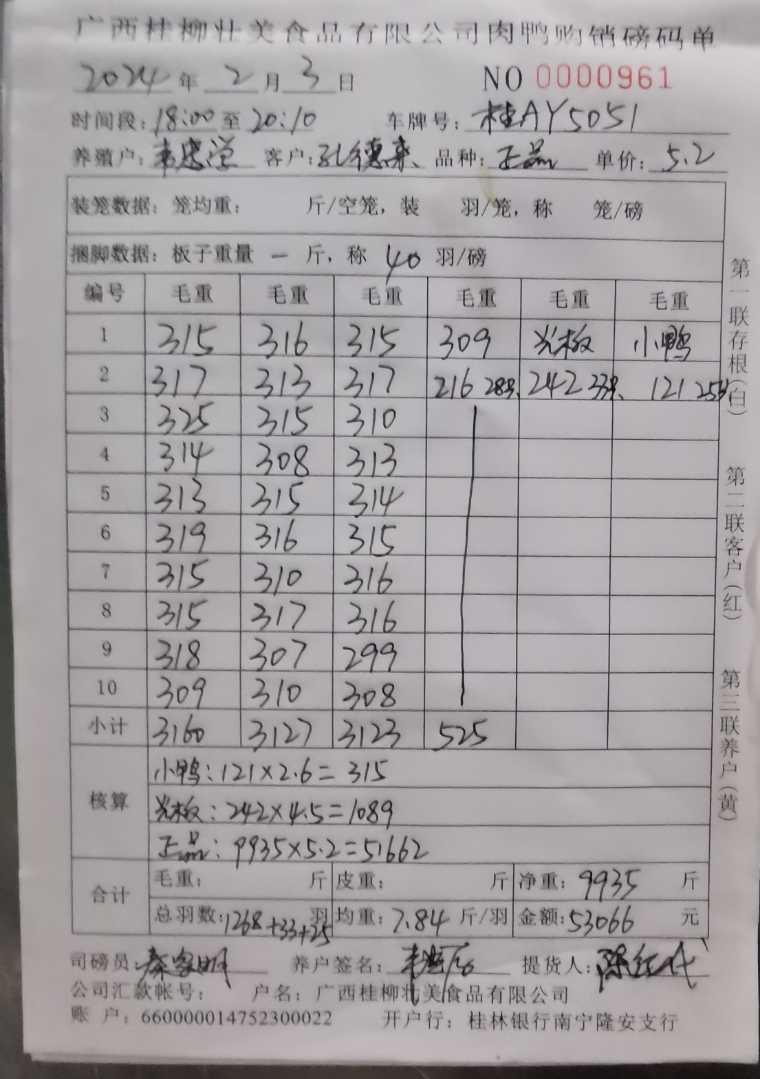 广西桂柳壮美食品有限公司肉鸭购销磅码单
2024年 2月 3日 NO 0000961
时间段: 18:00 至 20:10 车牌号: 桂AY5051
养殖户: 韦忠 客户: 孔德来 品种: 正品 单价: 5.2
装笼数据: 笼均重: 斤/空笼, 装 羽/笼, 称 笼/磅
捆脚数据: 板子重量 一 斤, 称 40 羽/磅
编号 毛重 毛重 毛重 毛重 毛重 毛重
1 315 316 315 309 光板 小鸭
2 317 313 317 216 28只 242 33只 121 25只
3 325 315 310
4 314 308 313
5 313 315 314
6 319 316 315
7 315 310 316
8 315 317 316
9 318 307 299
10 309 310 308
小计 3160 3127 3123 525
核算
小鸭: 121×2.6= 315
光板: 242×4.5=1089
正品: 9935×5.2=51662
合计
毛重: 斤 皮重: 斤 净重: 9935 斤
总羽数: 1268+33+25 羽 均重: 7.84 斤/羽 金额: 53066 元
司磅员: 秦家明 养户签名: 韦 提货人: 陈
公司汇款帐号: 户名: 广西桂柳壮美食品有限公司
账 户: 660000014752300022 开户行: 桂林银行南宁隆安支行
第一联存根(白)
第二联客户(红)
第三联养户(黄)